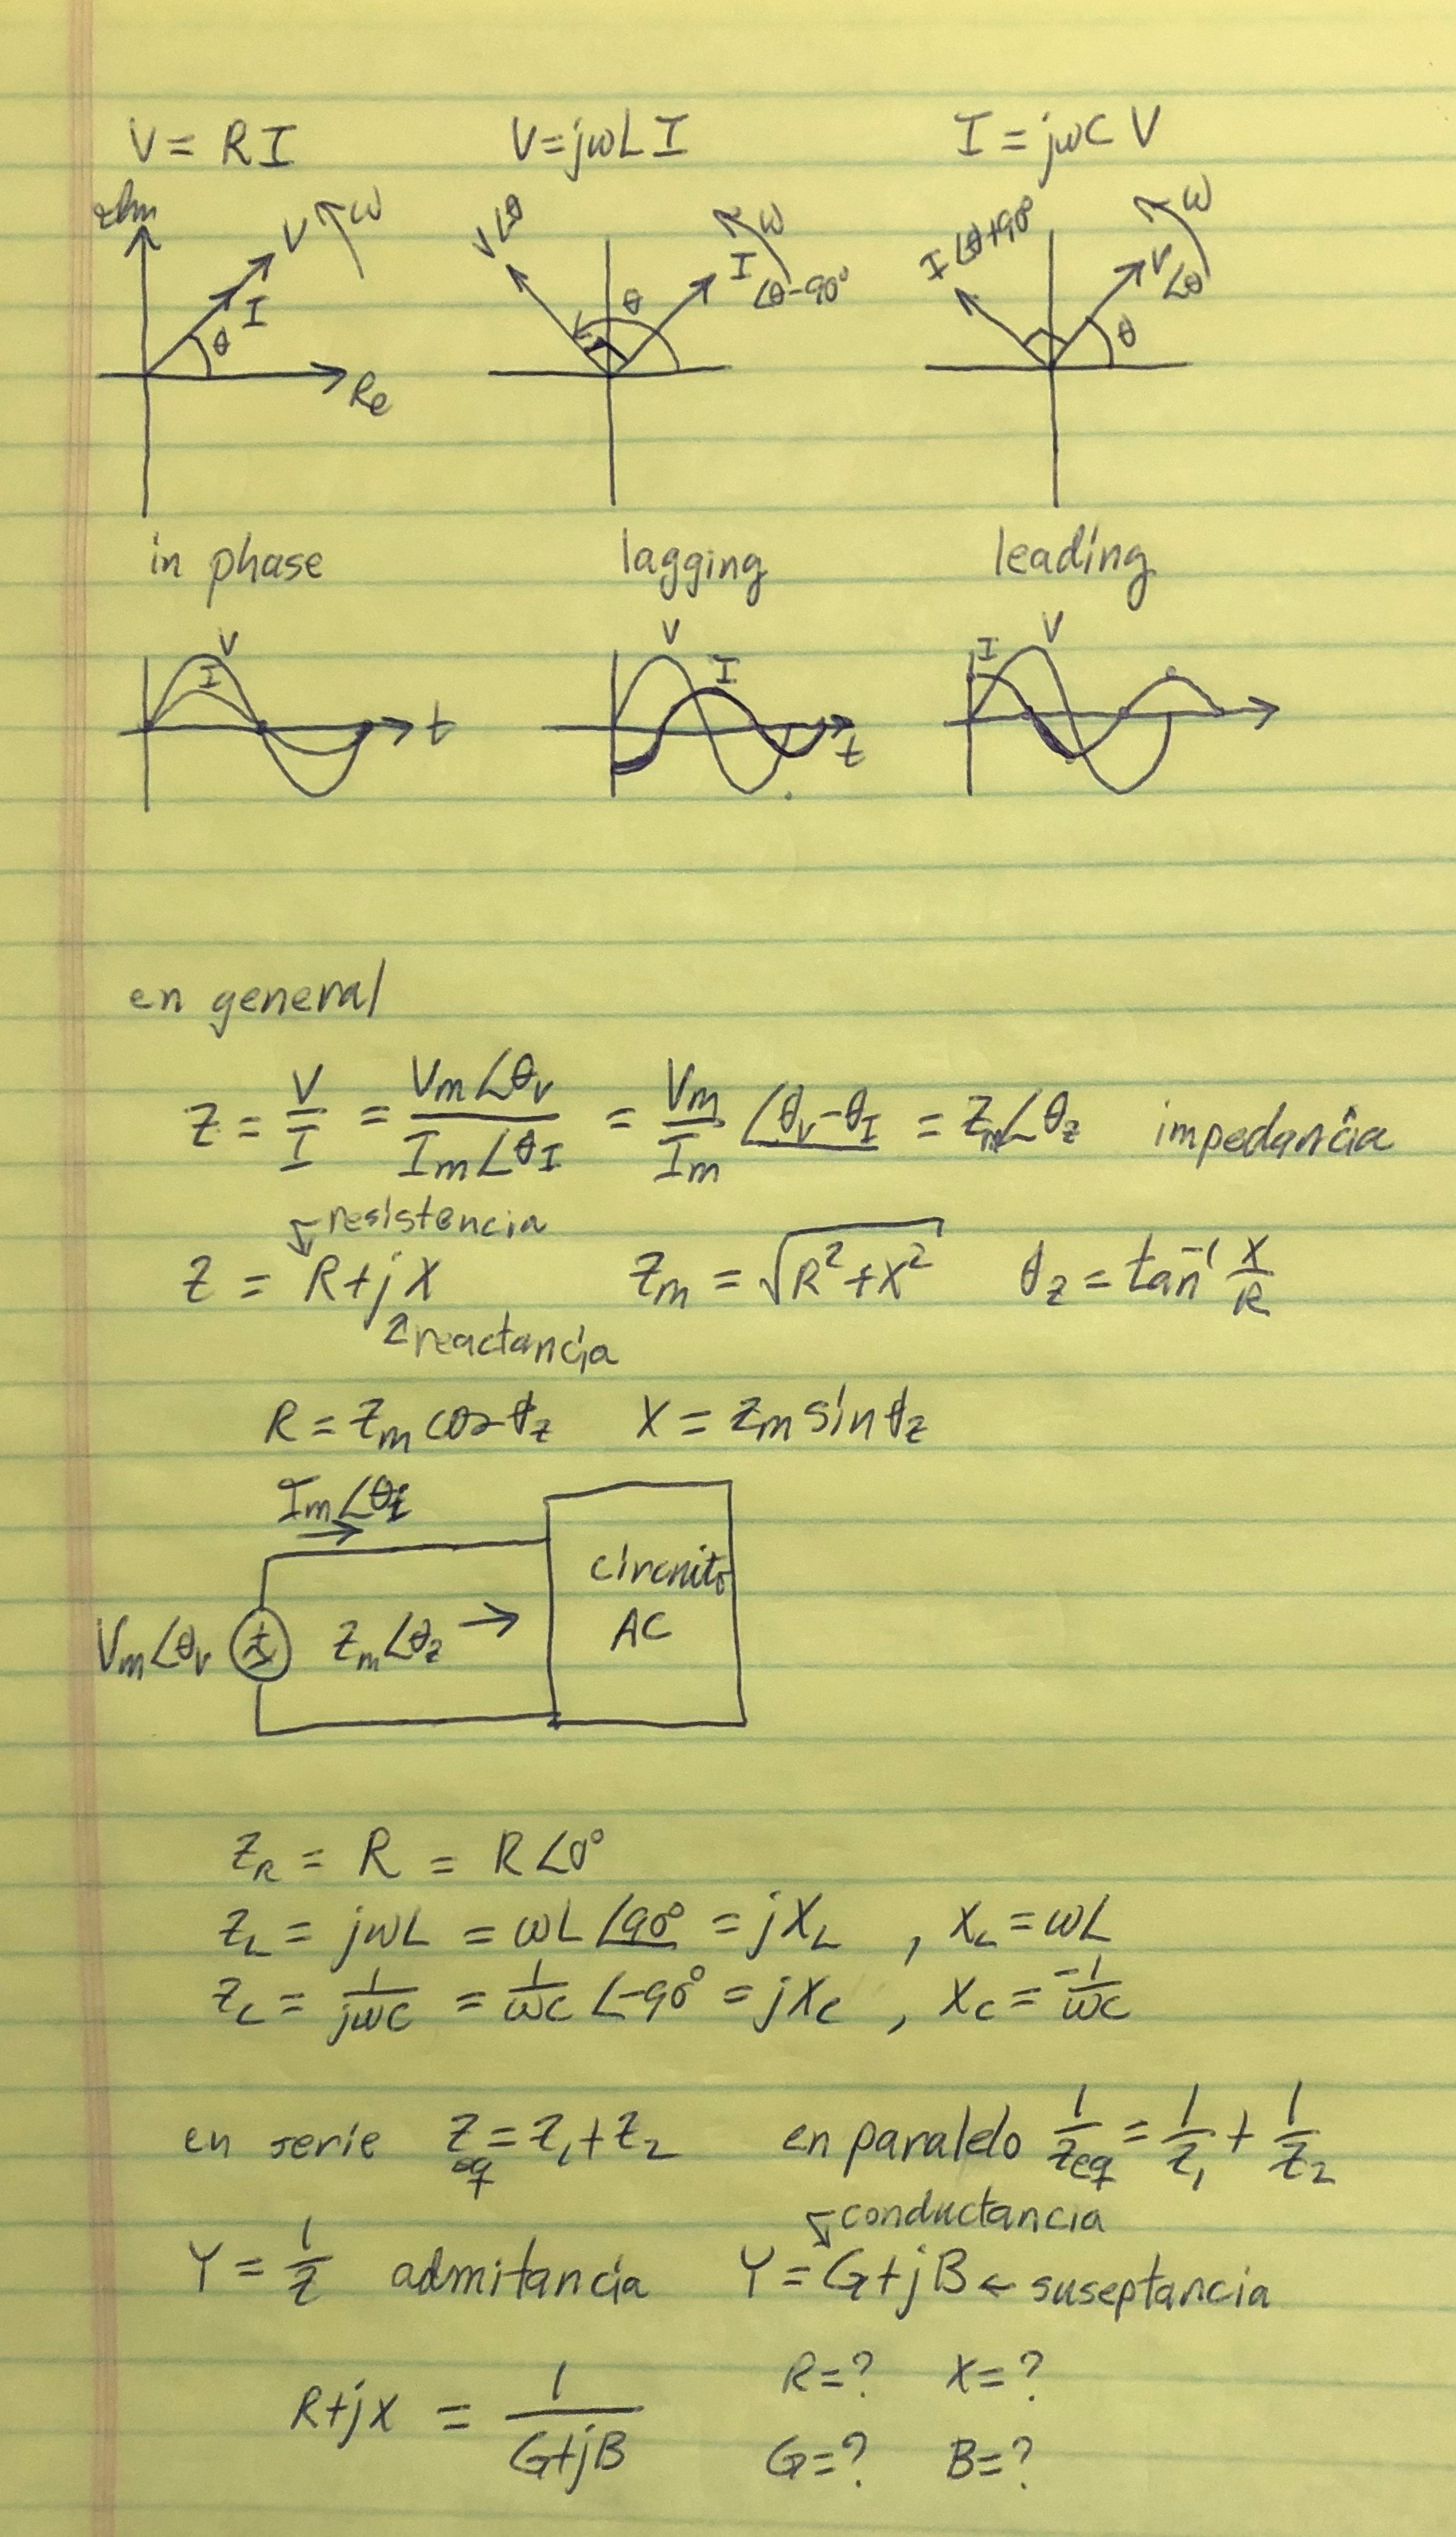 V = RI V = jωL I I = jωC V
Im V ω V∠θ ω I ∠θ-90° θ I∠θ+90° ω V ∠θ θ
I θ Re
in phase lagging leading
V I t V I t I V
en general
Z = V/I = Vm∠θv / Im∠θI = Vm/Im ∠θv-θI = Zm∠θz impedancia
resistencia
Z = R+jX Zm = √(R²+X²) θz = tan⁻¹ X/R
reactancia
R = Zm cos θz X = Zm sin θz
Im∠θi
circuito
Vm∠θv Zm∠θz → AC
ZR = R = R∠0°
ZL = jωL = ωL∠90° = jXL , XL = ωL
ZC = 1/jωC = 1/ωC ∠-90° = jXC , XC = -1/ωC
en serie Zeq = Z1+Z2 en paralelo 1/Zeq = 1/Z1 + 1/Z2
conductancia
Y = 1/Z admitancia Y = G+jB ← suseptancia
R+jX = 1/(G+jB) R=? X=?
G=? B=?